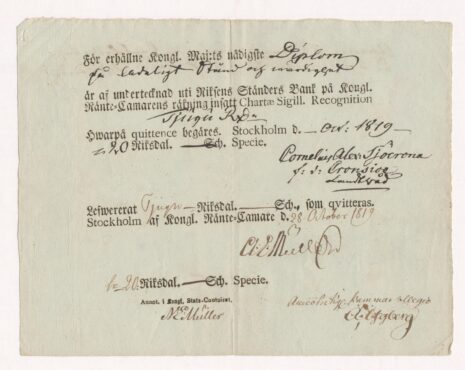 För erhållne Kongl. Maj:ts nådigste Diplom
på adeligt Stånd och wärdighet
är af undertecknad uti Riksens Ständers Bank på Kongl.
Ränte-Camarens räkning insatt Chartæ Sigill. Recognition
Tjugu Rd
Hwarpå quittence begäres. Stockholm d. — Oct: 1819 —
20 Riksdal. — Sch. Specie.
Cornelius Alex: Sjöcrona
f: d:
Lefwererat Tjugu — Riksdal. — Sch., som qvitteras.
Stockholm af Kongl. Ränte-Camare d. 28 October 1819
Müller
20 Riksdal. — Sch. Specie.
Annot. i Kongl. Stats-Contoiret.
Müller